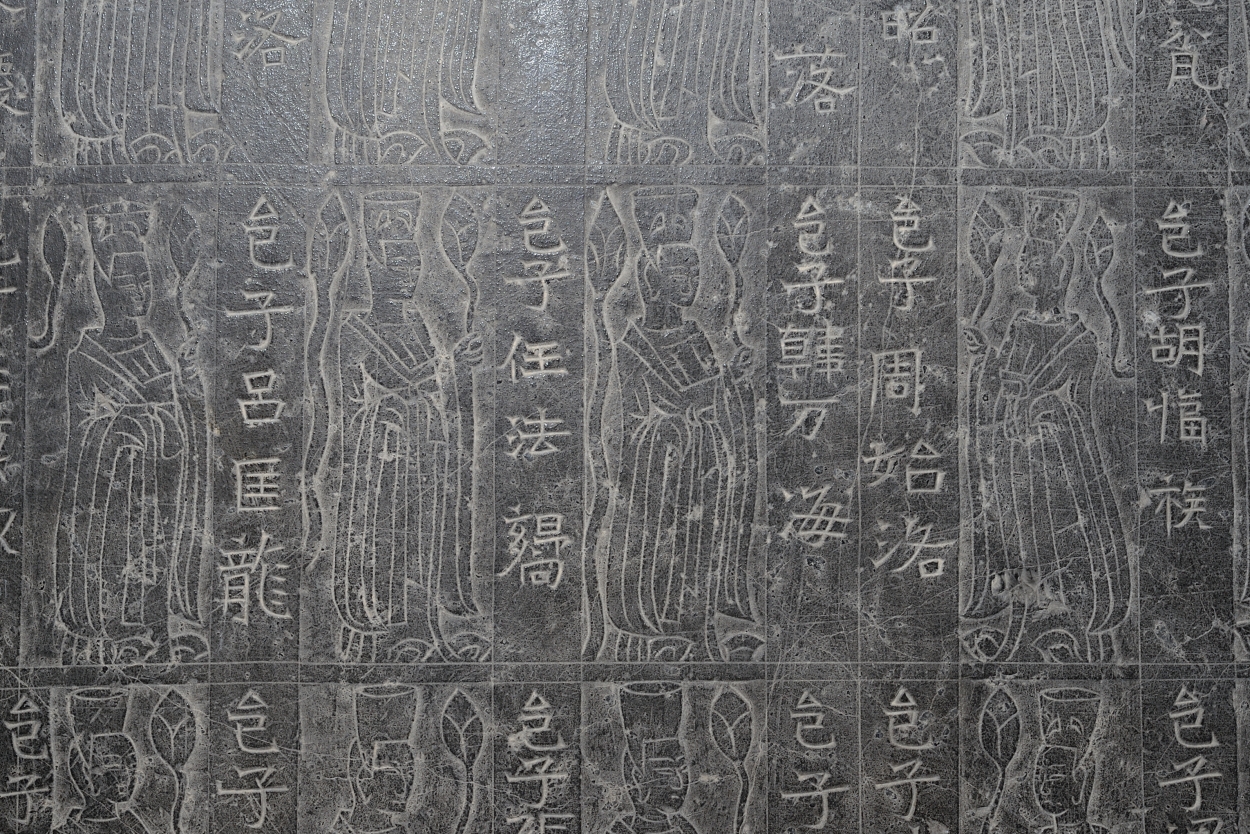 昭
落
洛
邑子胡愊
邑子周始洛
邑子韓万海
邑子任法
邑子呂匡龍
邑子
邑子
邑子
邑子
邑子
邑子